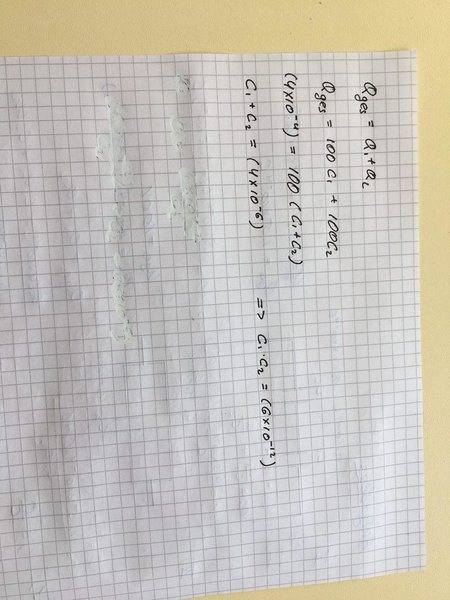 Qges = Q₁ + Q₂
Qges = 100 C₁ + 100C₂
(4×10⁻⁴) = 100 (C₁+C₂)
C₁ + C₂ = (4×10⁻⁶) => C₁·C₂ = (6×10⁻¹²)